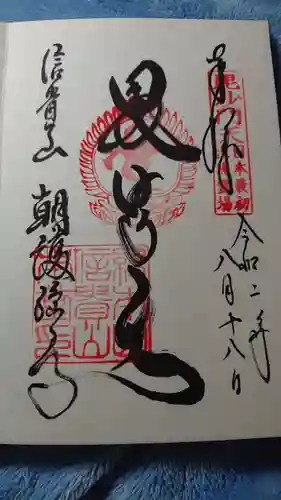 奉拝
毘沙門天王
日本最初
令和二年
八月十八日
毘沙門天王
信貴山
朝護孫子寺